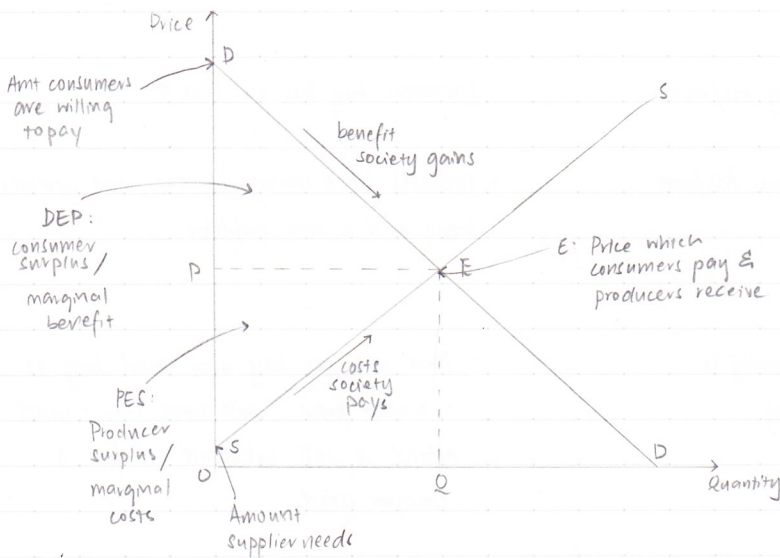 Price
D
Amt consumers
are willing
to pay
S
benefit
society gains
DEP:
consumer
surplus/
marginal
benefit
P
E
E: Price which
consumers pay &
producers receive
costs
society
pays
PES:
Producer
surplus/
marginal
costs
S
O
Q
D
Quantity
Amount
supplier needs